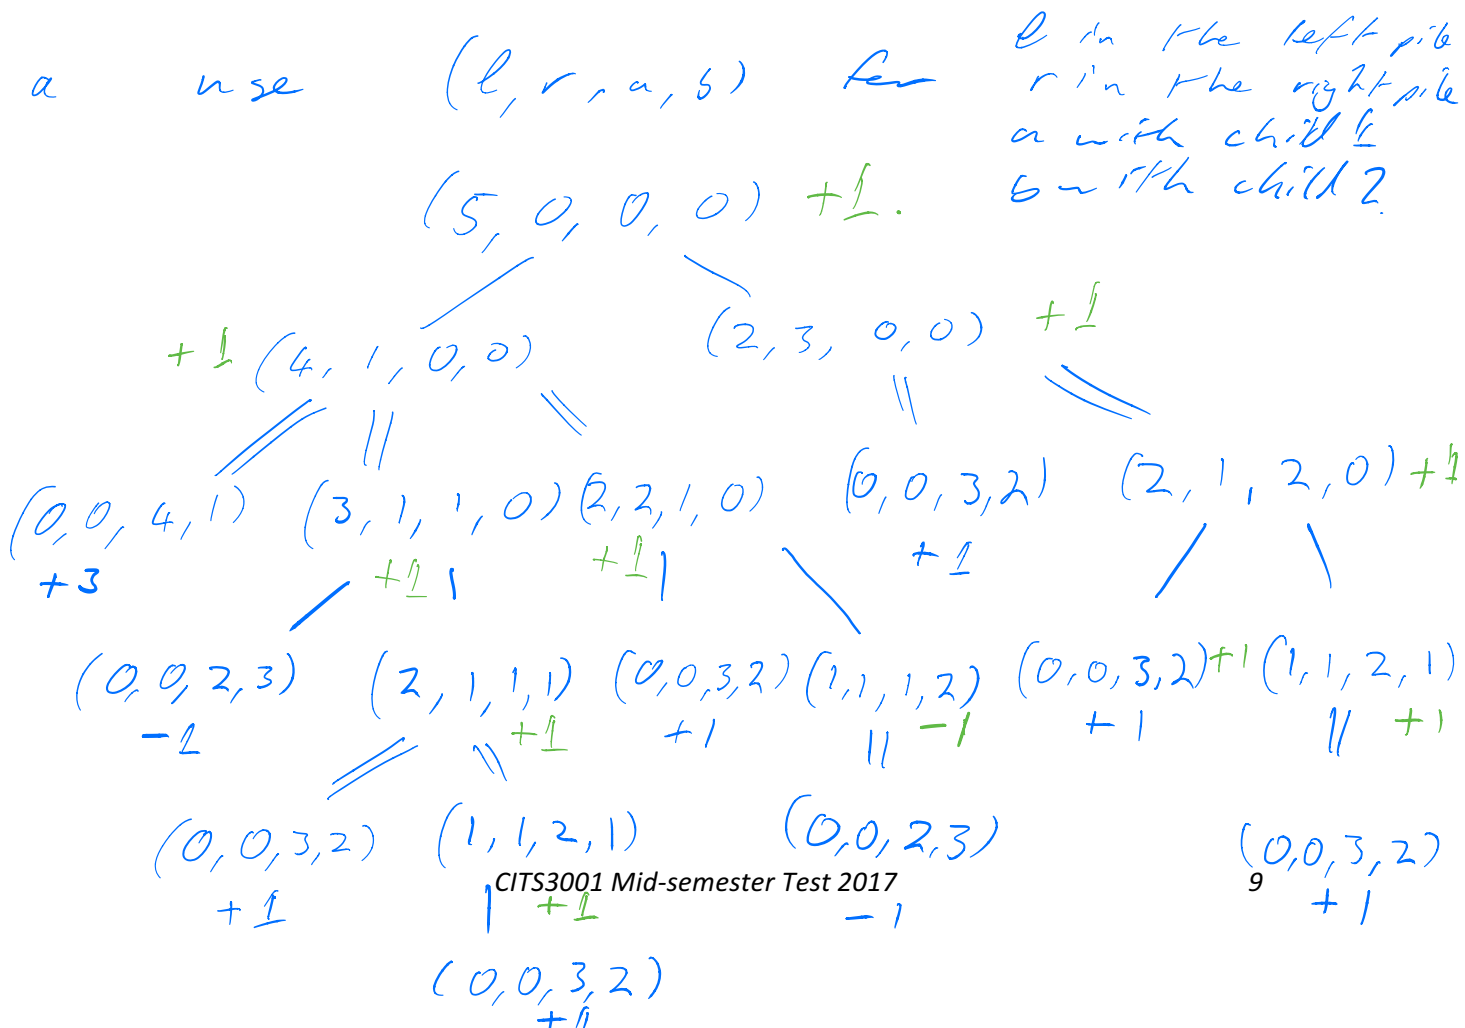 a use (l, r, a, b) for
l in the left pile
r in the right pile
a with child 1
b with child 2
(5, 0, 0, 0) +1.
+1 (4, 1, 0, 0) (2, 3, 0, 0) +1
(0, 0, 4, 1) (3, 1, 1, 0) (2, 2, 1, 0) (0, 0, 3, 2) (2, 1, 2, 0) +1
+3 +1 +1 +1
(0, 0, 2, 3) (2, 1, 1, 1) (0, 0, 3, 2) (1, 1, 1, 2) (0, 0, 3, 2) +1 (1, 1, 2, 1)
-1 +1 +1 -1 +1 +1
(0, 0, 3, 2) (1, 1, 2, 1) (0, 0, 2, 3) (0, 0, 3, 2)
CITS3001 Mid-semester Test 2017 9
+1 +1 -1 +1
(0, 0, 3, 2)
+1